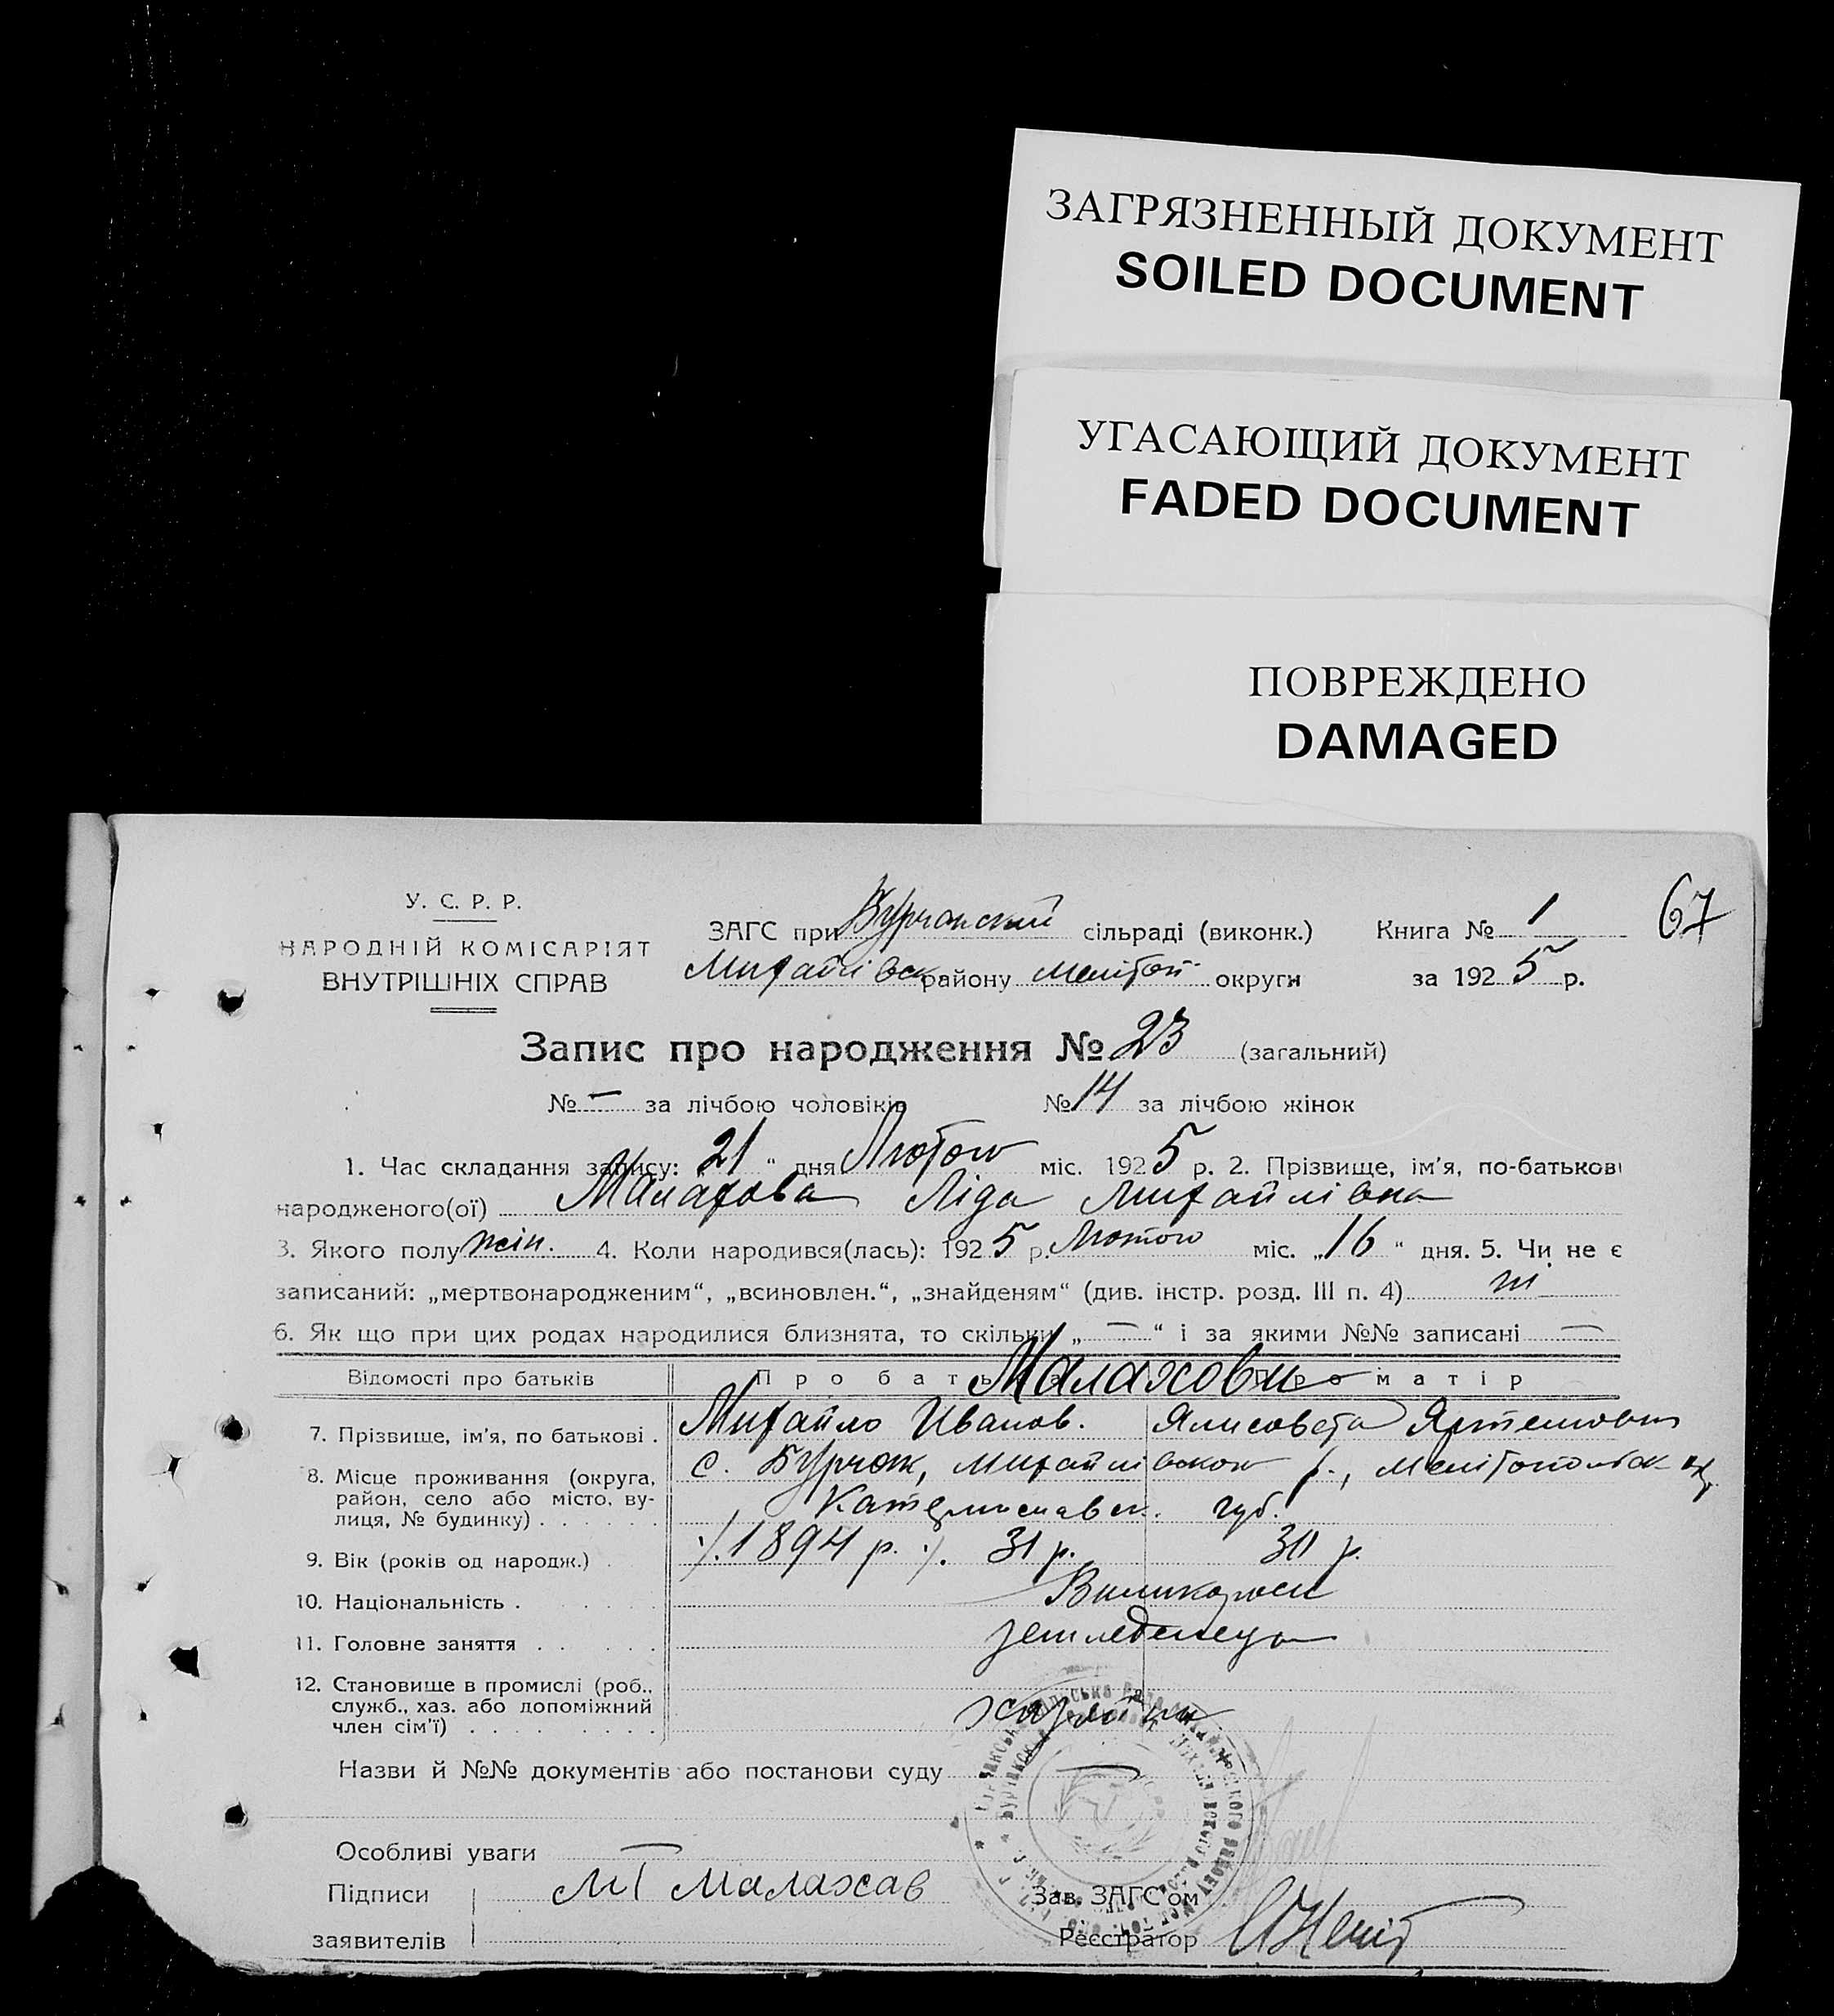 ЗАГРЯЗНЕННЫЙ ДОКУМЕНТ
SOILED DOCUMENT
УГАСАЮЩИЙ ДОКУМЕНТ
FADED DOCUMENT
ПОВРЕЖДЕНО
DAMAGED
67
У. С. Р. Р.
НАРОДНІЙ КОМІСАРІЯТ
ВНУТРІШНІХ СПРАВ
ЗАГС при Бурчанській сільраді (виконк.) Книга № 1
Михайлівськ району Мелітоп округи за 1925 р.
Запис про народження № 23 (загальний)
№ — за лічбою чоловіків № 14 за лічбою жінок
1. Час складання запису: „21“ дня Лютого міс. 1925 р. 2. Прізвище, ім'я, по-батькові
народженого(ої) Малахова Ліда Михайлівна
3. Якого полу жін. 4. Коли народився(лась): 1925 р. Лютого міс. „16“ дня. 5. Чи не є
записаний: „мертвонародженим“, „всиновлен.“, „знайденям“ (див. інстр. розд. III п. 4) ні
6. Як що при цих родах народилися близнята, то скільки „—“ і за якими №№ записані —
Відомості про батьків Про батька Про матір
Малахови
7. Прізвище, ім'я, по батькові . Михайло Иванов. Ялисовета Яртемовна
8. Місце проживання (округа, район, село або місто, вулиця, № будинку) с. Бурчак, Михайлівского р., Мелітопольск окр.
Катеринославск. губ.
9. Вік (років од народж.) 1894 р. 31 р. 30 р.
10. Національність . Виликороси
11. Головне заняття
12. Становище в промислі (роб., служб., хаз. або допоміжний член сім'ї)
Назви й №№ документів або постанови суду —
Особливі уваги —
Підписи М Г Малахав Зав. ЗАГС'ом
заявителів Реєстратор